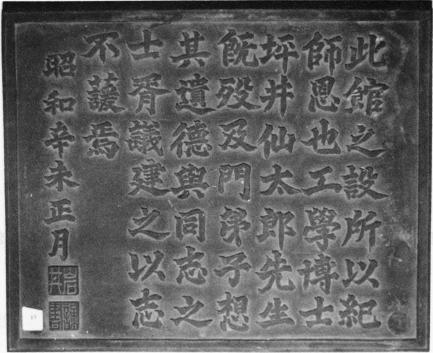 此館之設所以紀
師恩也工學博士
坪井仙太郎先生
旣歿及門弟子想
其遺德與同志之
士胥議建之以志
不蘐焉
昭和辛未正月